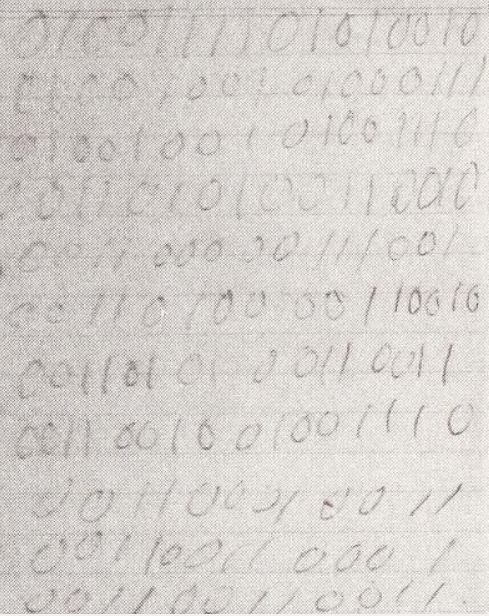 0100111101010010
01001001 01000111
01001001 01001110
0011010100110010
0011 000 00 111001
00110100 00110010
00110101 00110011
00110010 01001110
00110001 0011
00110011 0001
001100110011